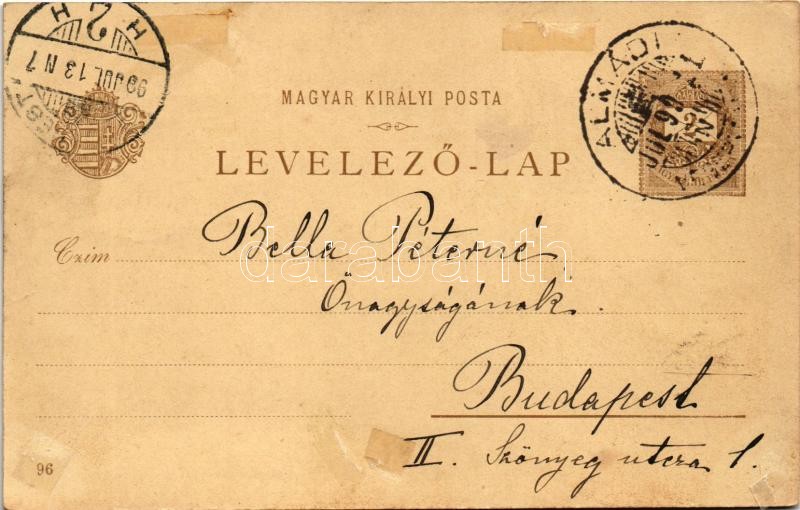 H 2 H
99 JUL 13 N 7
ALMÁDI
MAGYAR KIRÁLYI POSTA
LEVELEZŐ-LAP
Czim
Bella Péterné
Őnagyságának
Budapest
II. Szőnyeg utcza 1.
96
darabanth